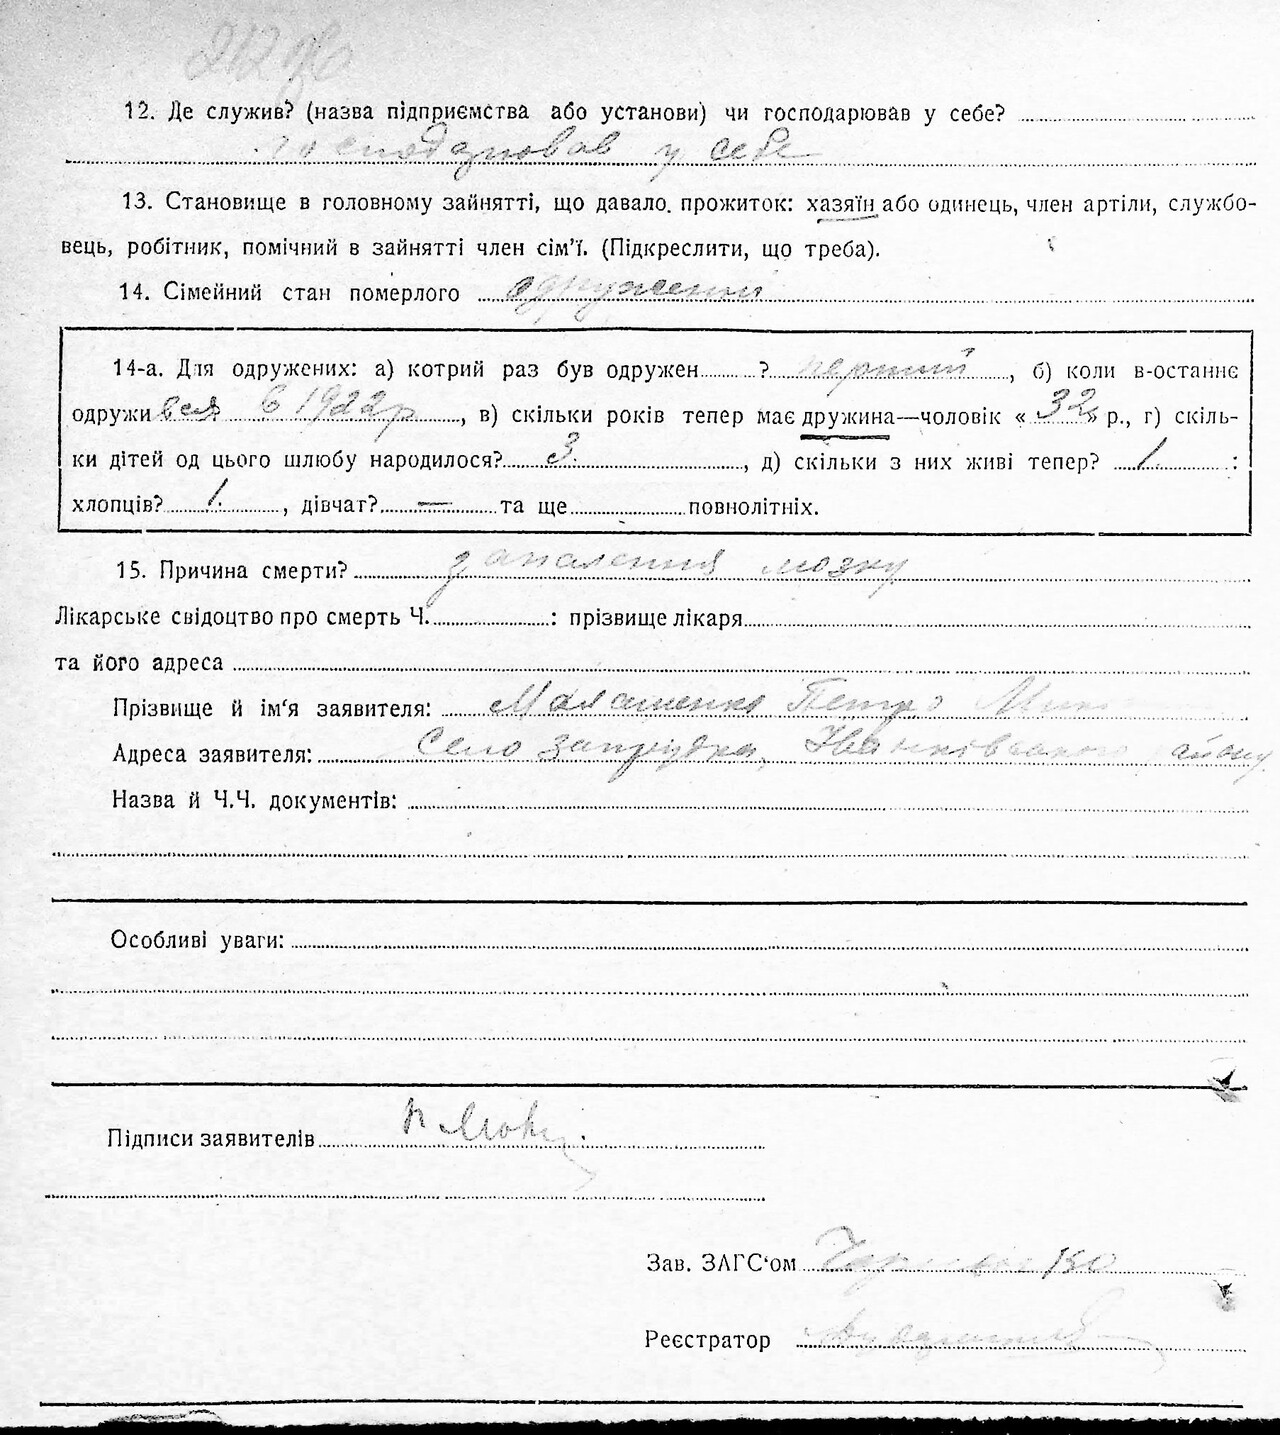 12. Де служив? (назва підприємства або установи) чи господарював у себе?
господарював у себе
13. Становище в головному зайнятті, що давало. прожиток: хазяїн або одинець, член артіли, службо-
вець, робітник, помічний в зайнятті член сім'ї. (Підкреслити, що треба).
14. Сімейний стан померлого одружений
14-а. Для одружених: а) котрий раз був одружен ? перший, б) коли в-останнє
одружився в 1922 р, в) скільки років тепер має дружина—чоловік «32» р., г) скіль-
ки дітей од цього шлюбу народилося? 3, д) скільки з них живі тепер? 1 :
хлопців? 1, дівчат? — та ще повнолітніх.
15. Причина смерти? запалення мозку
Лікарське свідоцтво про смерть Ч. : прізвище лікаря
та його адреса
Прізвище й ім'я заявителя: Петро
Адреса заявителя: Село
Назва й Ч.Ч. документів:
Особливі уваги:
Підписи заявителів
Зав. ЗАГС'ом
Реєстратор